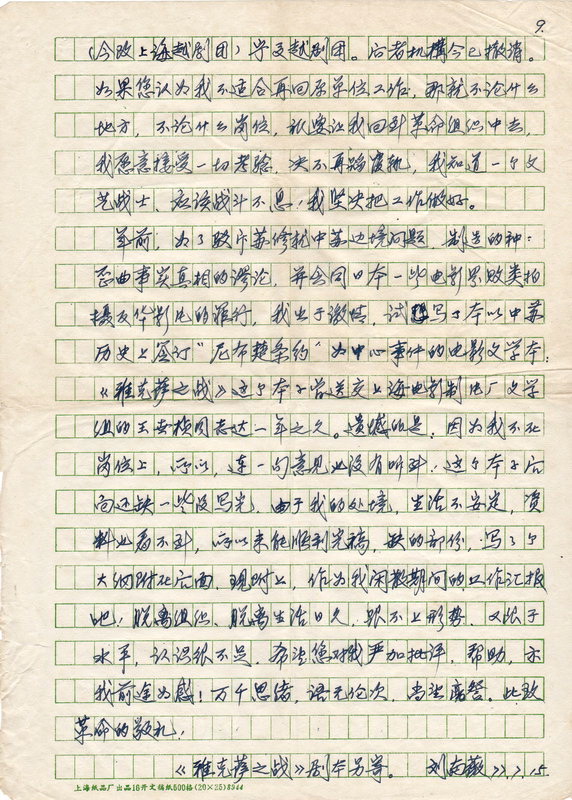 9.
(今改上海越剧团)学习越剧团。后者机构今已撤消。
如果您认为我不适合再回原单位工作,那就不论什么
地方,不论什么岗位,祇要让我回到革命组织中去,
我愿意接受一切考验,决不再蹈覆轨,我知道一个文
艺战士、应该战斗不息,我坚决把工作做好。
年前,为了驳斥苏修就中苏边境问题,制造的种:
歪曲事实真相的谬论,并会同日本一些电影界败类拍
摄反华影片的罪行,我出于激情,试写了本以中苏
历史上签订"尼布楚条约"为中心事件的电影文学本:
《雅克萨之战》这个本子曾送交上海电影制片厂文学
组的王世桢同志达一年之久。遗憾的是:因为我不在
岗位上,所以,连一句意见也没有听到,这个本子后
面还缺一些没写完,由于我的处境,生活不安定,资
料也看不到,所以未能顺利完稿,缺的部份,写了个
大纲附在后面,现附上,作为我闲散期间的工作汇报
吧!脱离组织、脱离生活日久,跟不上形势,又限于
水平,认识很不足,希望您对我严加批评,帮助,示
我前途为感!万千思绪,语无伦次,尚望亮詧,此致
革命的敬礼!
《雅克萨之战》剧本另寄。 刘南薇 77.7.15.
上海纸品厂出品16开文稿纸500格(20×25)8944